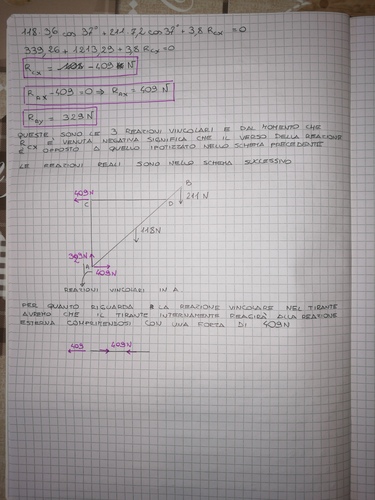 118·3,6 cos 37° + 211·7,2 cos 37° + 3,8 Rcx = 0
339,26 + 1213,29 + 3,8 Rcx = 0
Rcx = -409 N
RAX - 409 = 0 ⇒ RAX = 409 N
RAy = 329 N
QUESTE SONO LE 3 REAZIONI VINCOLARI E DAL MOMENTO CHE
RCX E' VENUTA NEGATIVA SIGNIFICA CHE IL VERSO DELLA REAZIONE
E' OPPOSTO A QUELLO IPOTIZZATO NELLO SCHEMA PRECEDENTE
LE REAZIONI REALI SONO NELLO SCHEMA SUCCESSIVO
B
409N
C
D
211 N
118N
A
409N
REAZIONI VINCOLARI IN A
PER QUANTO RIGUARDA LA REAZIONE VINCOLARE NEL TIRANTE
AVREMO CHE IL TIRANTE INTERNAMENTE REAGIRÀ ALLA REAZIONE
ESTERNA COMPRIMENDOSI CON UNA FORZA DI 409N
409
409N